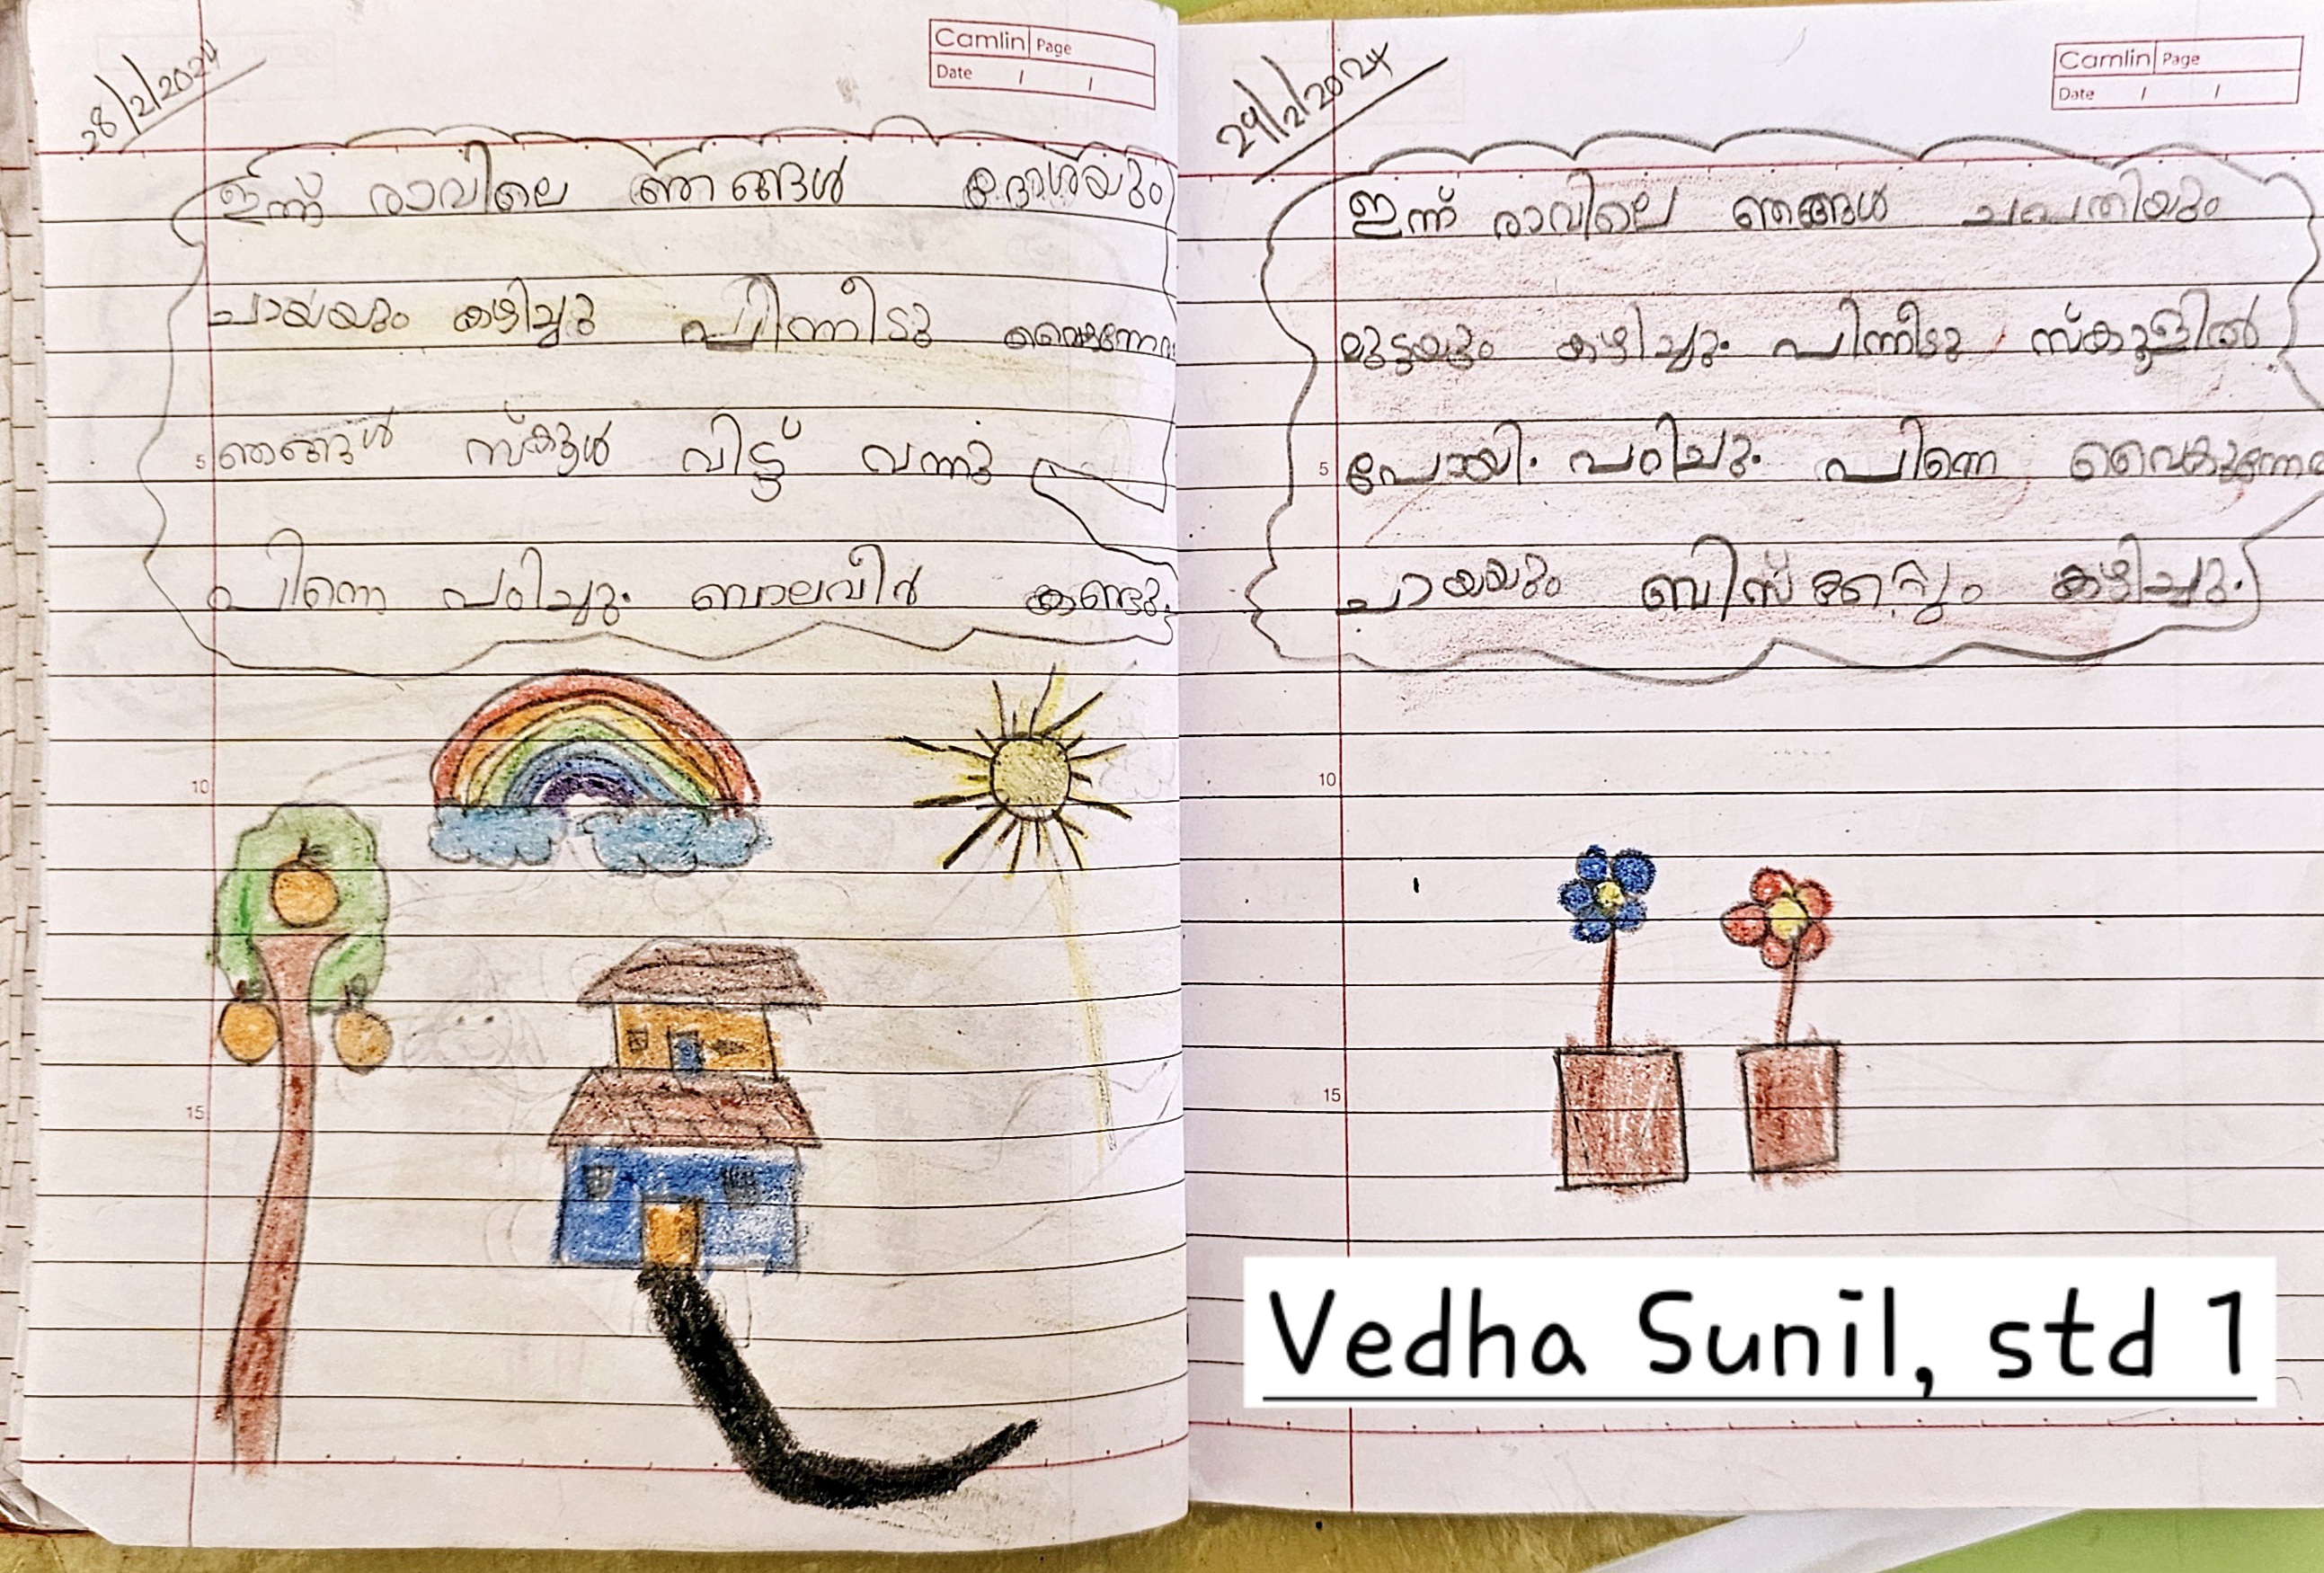 28/2/2024
Camlin Page
Date / /
ഇന്ന് രാവിലെ ഞങ്ങൾ ദോശയും
ചായയും കഴിച്ചു പിന്നീടു
ഞങ്ങൾ സ്കൂൾ വിട്ട് വന്നു
പിന്നെ പഠിച്ചു. ബാലവീർ കണ്ടു.
5
10
15
29/2/2024
Camlin Page
Date / /
ഇന്ന് രാവിലെ ഞങ്ങൾ ചപതിയും
മുട്ടയും കഴിച്ചു. പിന്നീടു സ്കൂളിൽ
പോയി. പഠിചു. പിന്നെ
ചായയും കഴിച്ചു.
5
10
15
Vedha Sunil, std 1